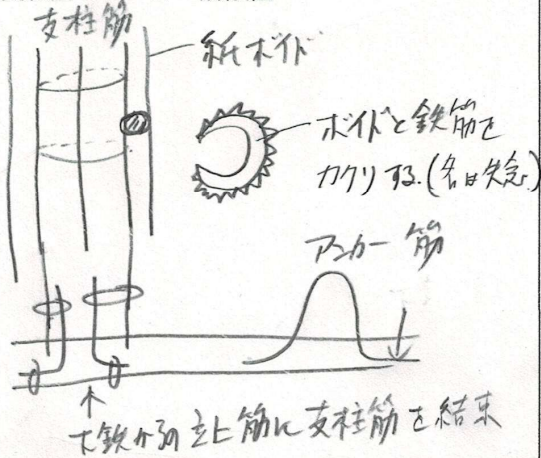 支柱筋
紙ボイド
ボイドと鉄筋を
カクリする.(名は失念.)
アンカー筋
大鉄からの立上筋に支柱筋を結束